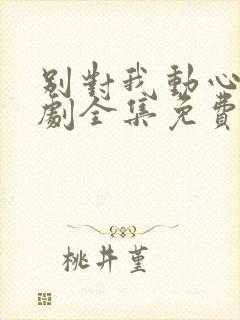 別對我動心
劇全集免費
桃井堇